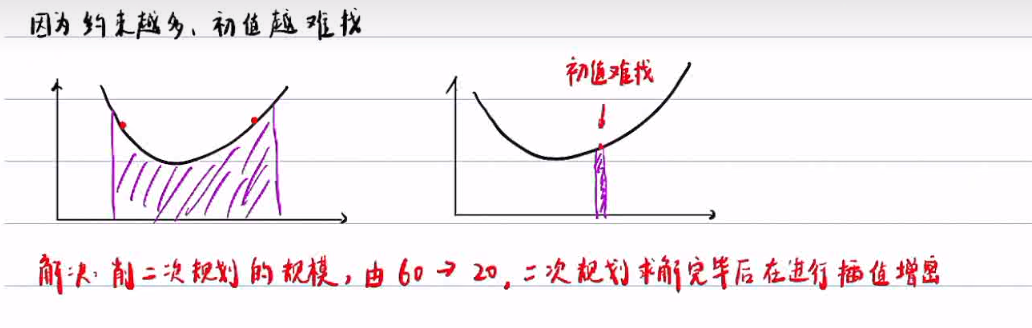 因为约束越多、初值越难找
初值难找
解决：削二次规划的规模，由60→20，二次规划求解完毕后在进行插值增密